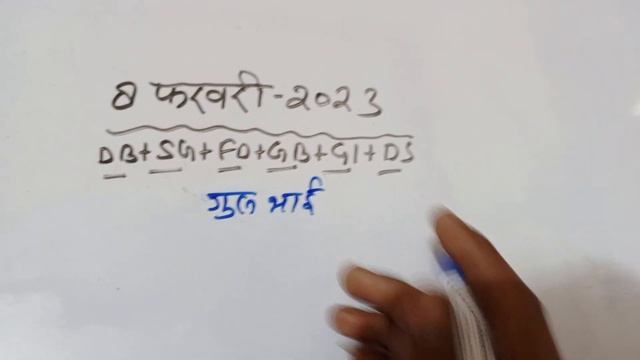 8 फरवरी-2023
DB+SG+FD+GB+GI+DS
गुल भाई